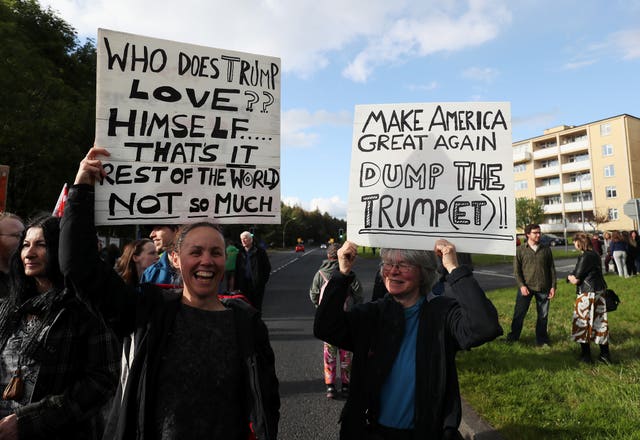 WHO DOES TRUMP
LOVE??
HIMSELF.....
THAT'S IT
REST OF THE WORLD
NOT SO MUCH
MAKE AMERICA
GREAT AGAIN
DUMP THE
TRUMP(ET)!!